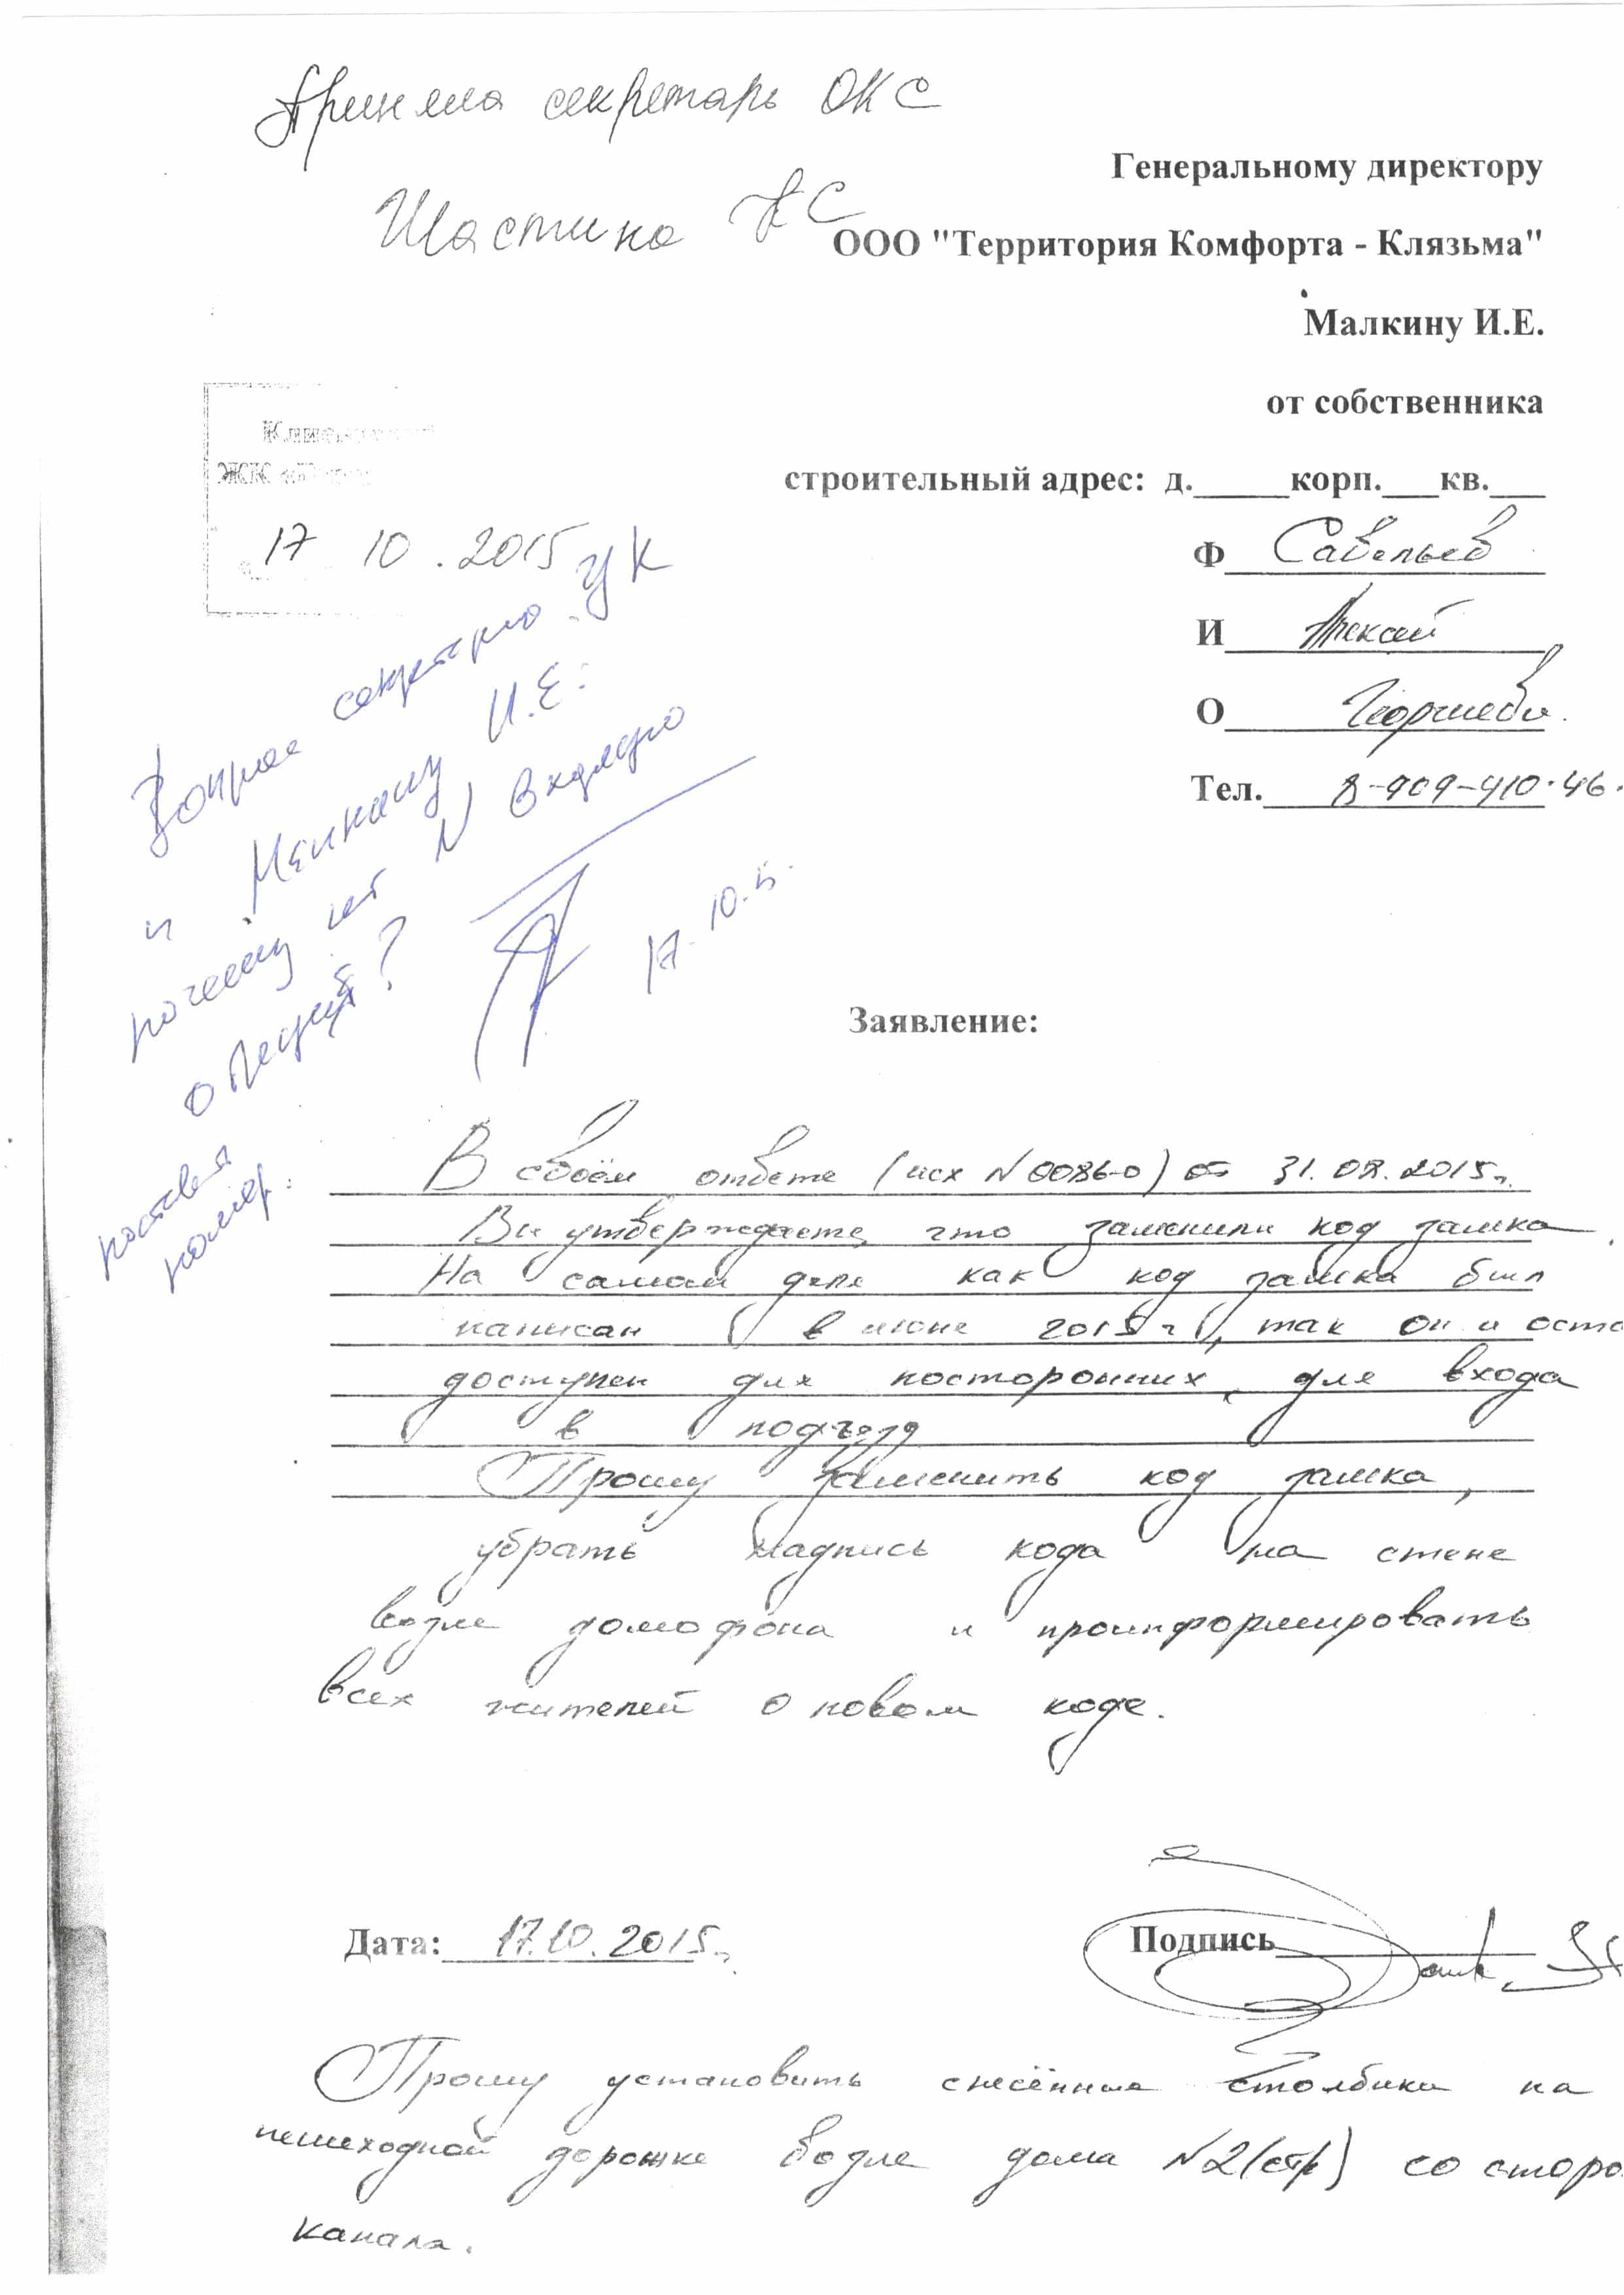 Приняла секретарь ОКС
Шастина
Генеральному директору
ООО "Территория Комфорта - Клязьма"
Малкину И.Е.
от собственника
строительный адрес: д._____корп.___кв.___
17 10 . 2015
Ф Савельев
И
О Георгиеви
Тел. 8-909-910-46-
Вопрос секретарю УК
и Малкину И.Е.:
почему нет N входящего
о
поставил
номер.
17.10.15.
Заявление:
В своём ответе (исх N 0086-0) от 31.08.2015г.
Вы утверждаете, что заменили код замка.
На самом деле как код замка был
написан в июне 2015 г, так он и оста
доступен для посторонних, для входа
в подъезд
Прошу заменить код замка,
убрать надпись кода на стене
возле домофона и проинформировать
всех жителей о новом коде.
Дата: 17.10.2015г.
Подпись
Прошу установить снесённые столбики на
пешеходной дорожке возле дома N2(стр) со сторо
канала.